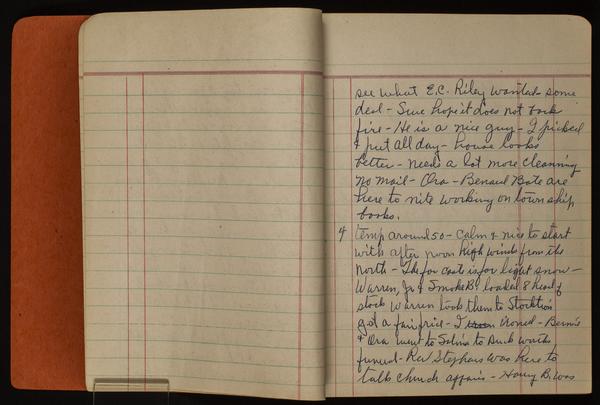 see what E.C. Riley wanted some
deal - Sure hope it does not back
fire - He is a nice guy - I picked
& put all day - house looks
better - needs a lot more cleanning
no mail - Ora - Benard Bate are
here to nite working on town ship
books.
4 temp around 50 - calm & nice to start
with after noon high winds from the
north - The for cast is for light snow -
Warren, Jr & Smoke B. loaded 8 head of
stock Warren took them to Stockton
got a fair price - I ironed - Bernie
& Ora went to Salina to Buck Worths
funeral - Rev Stephens was here to
talk church affairs - Harry B. was